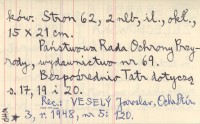 ków. Stron 62, 2 nlb, il., okł.,
15 x 21 cm.
Państwowa Rada Ochrony Przy-
rody, wydawnictwo nr 69.
Bezpośrednio Tatr dotyczą
s. 17, 19 i 20.
Rec.: VESELÝ Jaroslav, Ochr. Přír.
3, r. 1948, nr 5: 120.